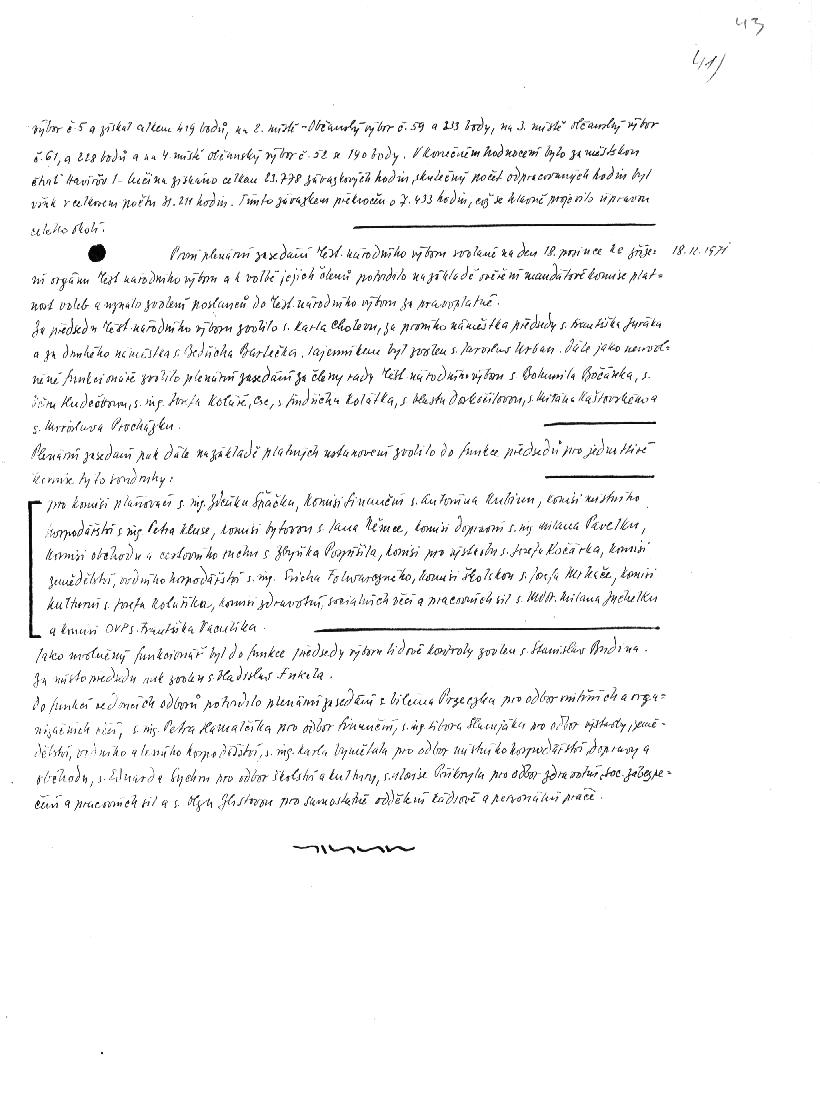 43
41/
výbor č. 5 a získal celkem 419 bodů, na 2. místě - Občanský výbor č. 59 a 233 body, na 3. místě občanský výbor
č. 61, a 228 bodů a na 4. místě občanský výbor č. 52 se 190 body. V konečném hodnocení bylo za městskou
část Havířov 1 - získáno celkem 23.778 závazkových hodin, skutečný počet odpracovaných hodin byl
však v celkovém počtu 31.211 hodin. Tímto závazkem překročen o 7.433 hodin, což se hlavně projevilo úpravou
celého okolí.
První plenární zasedání Měst. národního výboru svolané na den 18. prosince ke zříze= 18.12.1971
ní orgánu Měst. národního výboru a k volbě jejich členů potvrdilo na základě ověření mandátové komise plat=
nost voleb a uznalo zvolení poslanců do Měst. národního výboru za pravoplatné.
Za předsedu Měst. národního výboru zvolilo s. Karla Cholevu, za prvního náměstka předsedy s. Františka
a za druhého náměstka s. Bedřicha Bartečka, tajemníkem byl zvolen s. Jaroslav Urban. Dále jako neuvol=
něné funkcionáře zvolilo plenární zasedání za členy rady Měst. národního výboru s. Bohumila Bočánka, s.
Věru Hudcóbovou, s. ing. Josefa Koláře, Csc, s. Jindřicha Kolátka, s. Vlastu s. Milána a
s. Miroslava Procházku.
Plenární zasedání pak dále na základě platných ustanovení zvolilo do funkce předsedů pro jednotlivé
komise tyto soudruhy:
pro komisi plánovací s. ing. Zdeňka Špačka, komisi finanční s. Antonína Kubinu, komisi místního
hospodářství s. ing. Petra Kluse, komisi bytovou s. Jana Němce, komisi dopravní s. ing. Milana Pavelku,
komisi obchodu a cestovního ruchu s. Zbyňka Pospíšila, komisi pro výstavbu s. Josefa Kočárka, komisi
zemědělství, vodního hospodářství s. ing. Ericha Folwarczného, komisi školskou s. Josefa komisi
kulturní s. Josefa Kolatíka, komisi zdravotní, sociálních věcí a pracovních sil s. MUDr. Milana Juchelku
a komisi OVP s. Františka Vaculíka.
Jako uvolněný funkcionář byl do funkce předsedy výboru lidové kontroly zvolen s. Stanislav Budina.
Za místopředsedu pak zvolen s. Vladislav
Do funkcí vedoucích odborů potvrdilo plenární zasedání s. Viléma Przeczka pro odbor vnitřních a orga=
nizačních věcí, s. ing. Petra Hamalčíka pro odbor finanční, s. ing. Libora pro odbor výstavby, země=
dělství, vodního a lesního hospodářství, s. ing. Karla Vymětala pro odbor místního hospodářství, dopravy a
obchodu, s. Eduarda Sychru pro odbor školství a kultury, s. Aloise Přikryla pro odbor zdravotní, soc. zabezpe=
čení a pracovních sil a s. Olgu pro samostatné oddělení kádrové a personální práce.